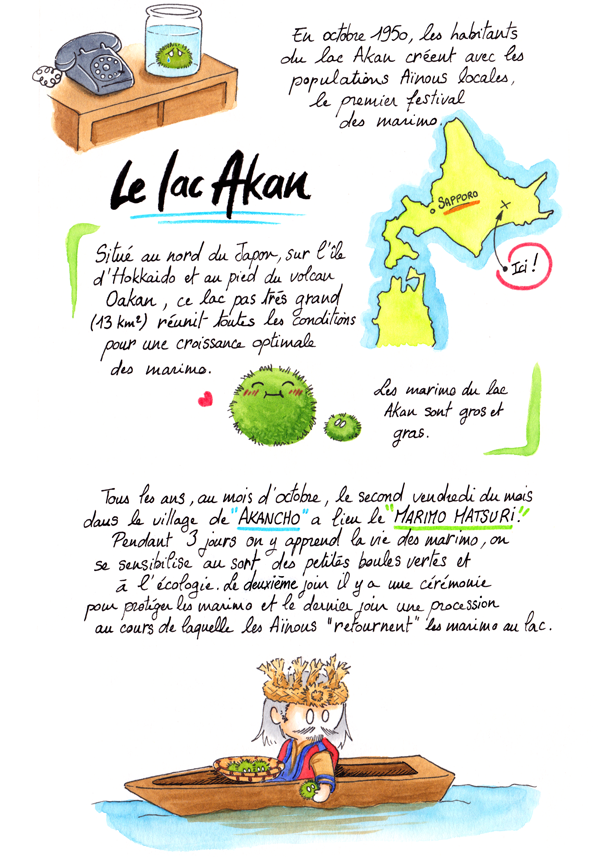 En octobre 1950, les habitants
du lac Akan créent avec les
populations Aïnous locales,
le premier festival
des marimo.
Le lac Akan
SAPPORO
Ici !
Situé au nord du Japon, sur l'île
d'Hokkaido et au pied du volcan
Oakan, ce lac pas très grand
(13 km²) réunit toutes les conditions
pour une croissance optimale
des marimo.
Les marimo du lac
Akan sont gros et
gras.
Tous les ans, au mois d'octobre, le second vendredi du mois
dans le village de "AKANCHO" a lieu le "MARIMO MATSURI".
Pendant 3 jours on y apprend la vie des marimo, on
se sensibilise au sort des petites boules vertes et
à l'écologie. Le deuxième join il y a une cérémonie
pour protéger les marimo et le dernier join une procession
au cours de laquelle les Aïnous "retournent" les marimo au lac.